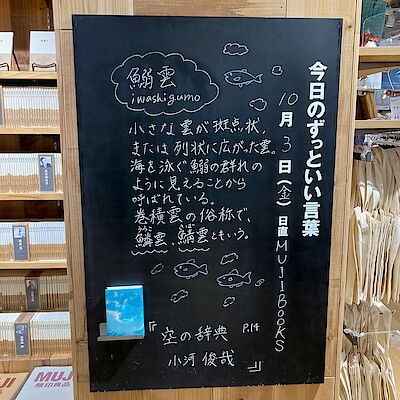 今日のずっといい言葉
10月3日(金) 日直 MUJI BOOKS
鰯雲
iwashigumo
小さな雲が斑点状、
または列状に広がった雲。
海を泳ぐ鰯の群れの
ように見えることから
呼ばれている。
巻積雲の俗称で、
鱗雲、鯖雲ともいう。
『空の辞典 P.14
小河 俊哉』
MUJI
MUJI
無印良品